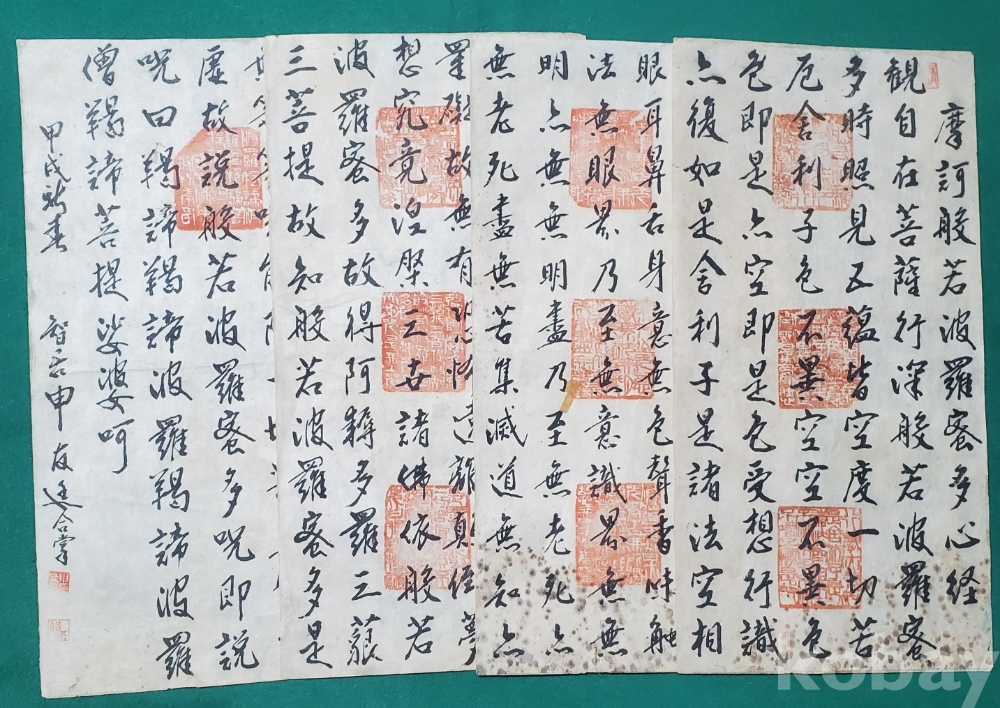 摩訶般若波羅蜜多心経
観自在菩薩行深般若波羅蜜
多時照見五蘊皆空度一切苦
厄舍利子色不異空空不異色
色即是亦空即是色受想行識
亦復如是舍利子是諸法空相
眼耳鼻舌身意無色聲香味触
法無眼界乃至無意識界無無
明亦無無明盡乃至無老死亦
無老死盡無苦集滅道無知亦
罣礙故無有恐怖遠離顛倒夢
想究竟涅槃三世諸佛依般若
波羅蜜多故得阿耨多羅三藐
三菩提故知般若波羅蜜多是
虛故説般若波羅蜜多呪即説
呪曰羯諦羯諦波羅羯諦波羅
僧羯諦菩提娑婆呵
甲戌新春 申友廷合掌
kobay